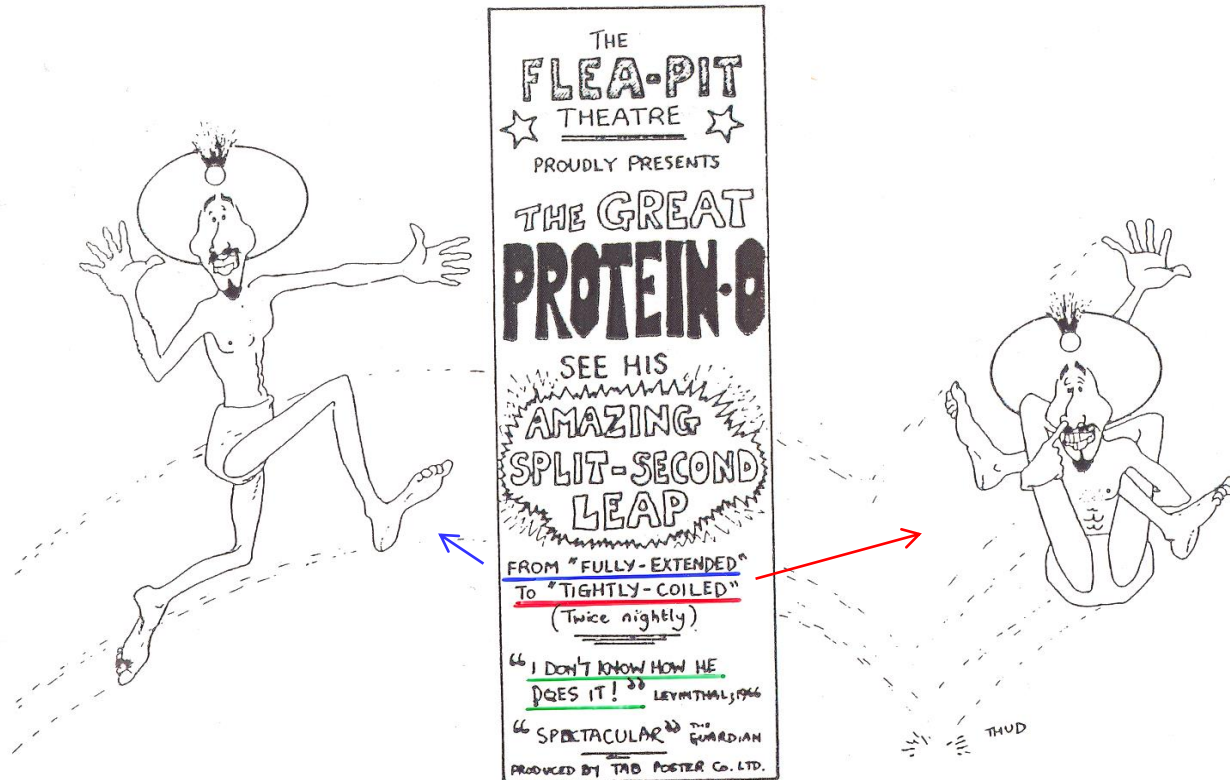 THE
FLEA-PIT
THEATRE
PROUDLY PRESENTS
THE GREAT
PROTEIN-O
SEE HIS
AMAZING
SPLIT-SECOND
LEAP
FROM "FULLY-EXTENDED"
TO "TIGHTLY-COILED"
(Twice nightly)
"I DON'T KNOW HOW HE
DOES IT!" LEVINTHAL, 1966
"SPECTACULAR" THE GUARDIAN
PRODUCED BY TAB POSTER Co. LTD.
THUD